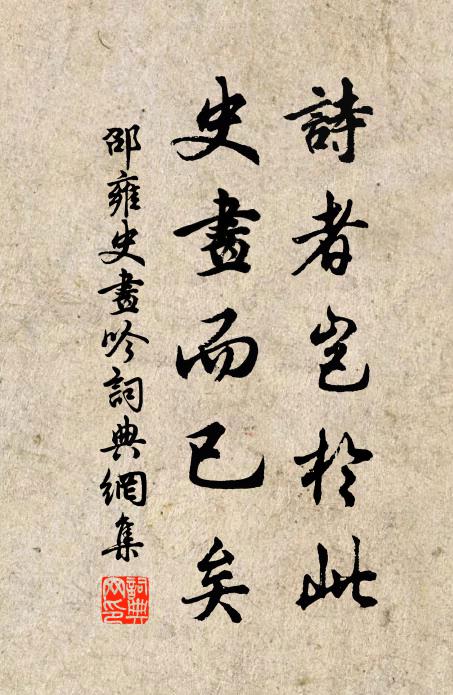 詩者豈於此
史畫而已矣
邵雍史畫吟詞典網集
詞典網印